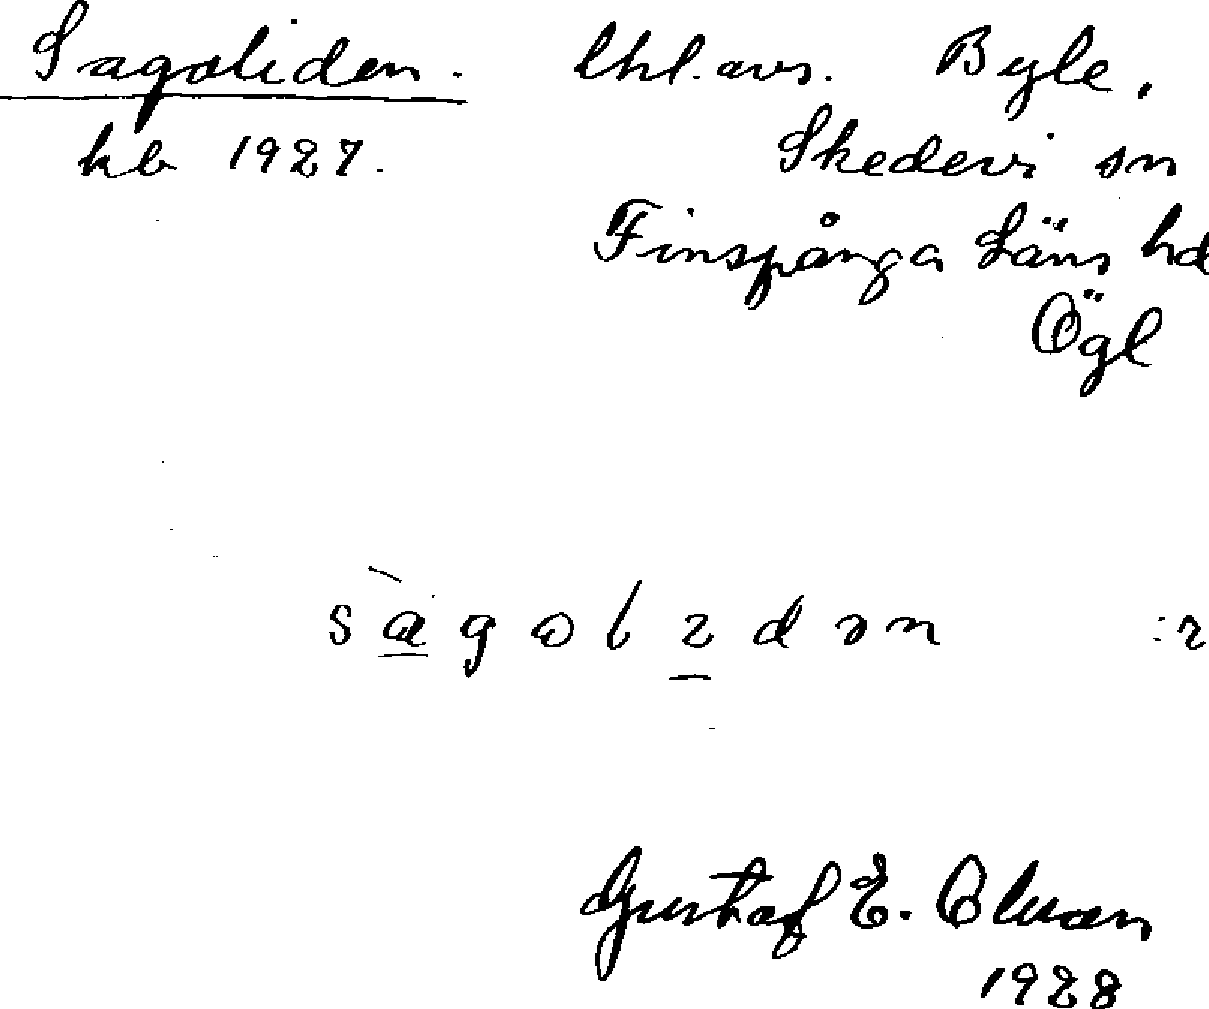 Sagoliden. lhl. avs. Byle,
kb 1927. Skedevi sn
Finspånga Läns hd
Ögl
Gustaf E. Olsson
1928